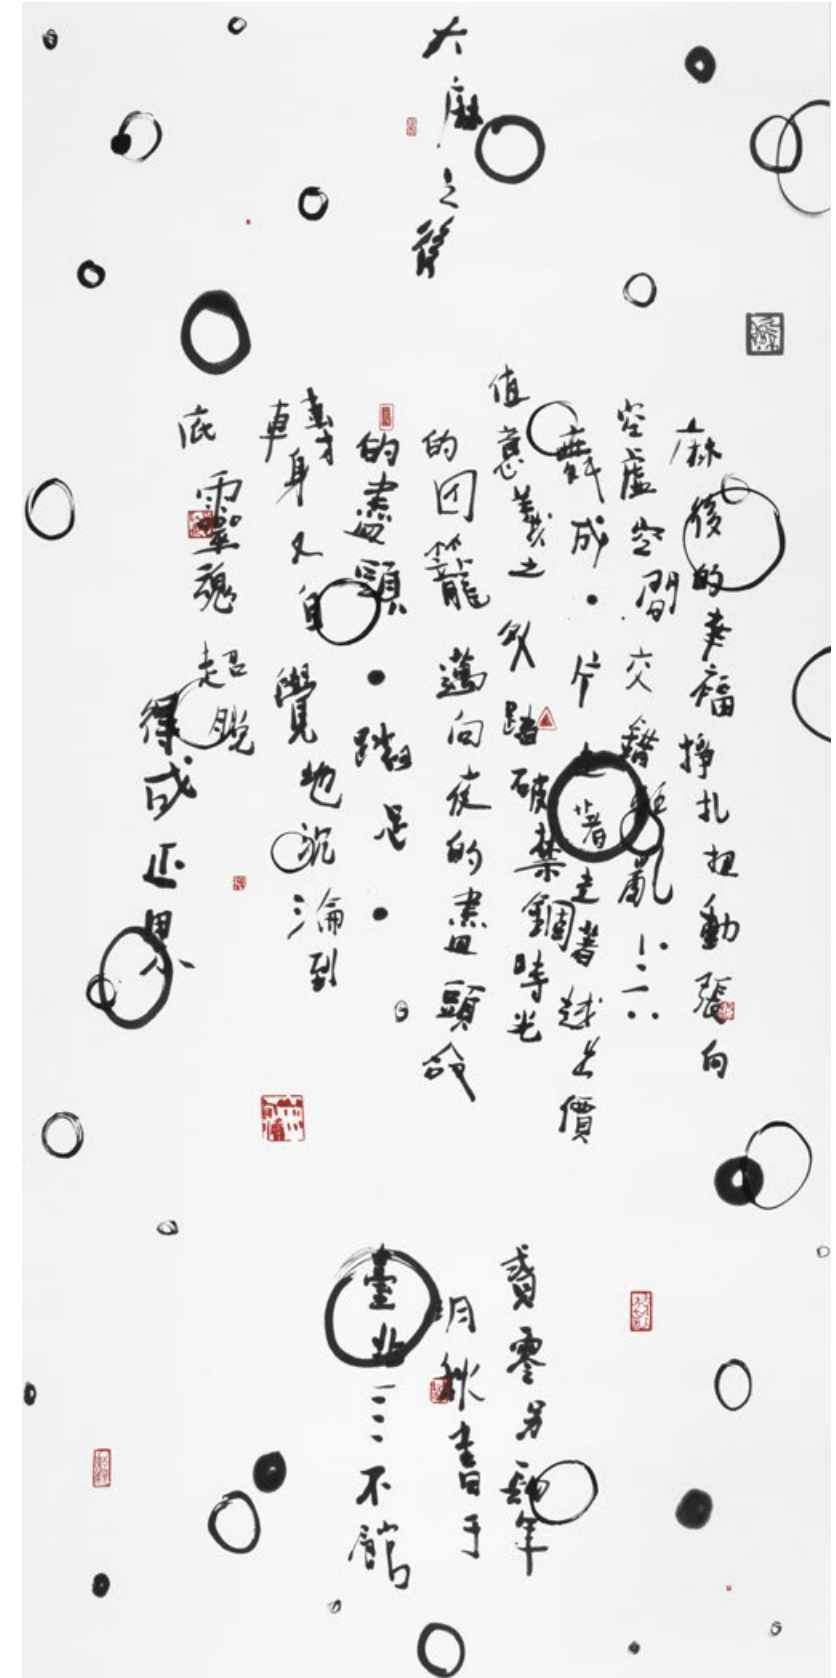 大麻之後
麻後的幸福掙扎扭動張向
空虛空間交錯雜亂
舞成・片走著走著越出價
值意義之外踏破禁錮時光
的籠邁向夜的盡頭命
的盡頭・踏・
轉身又自覺地沉淪到
底靈魂超脫
得成正果
貳零另肆年
秋書于
臺北不館